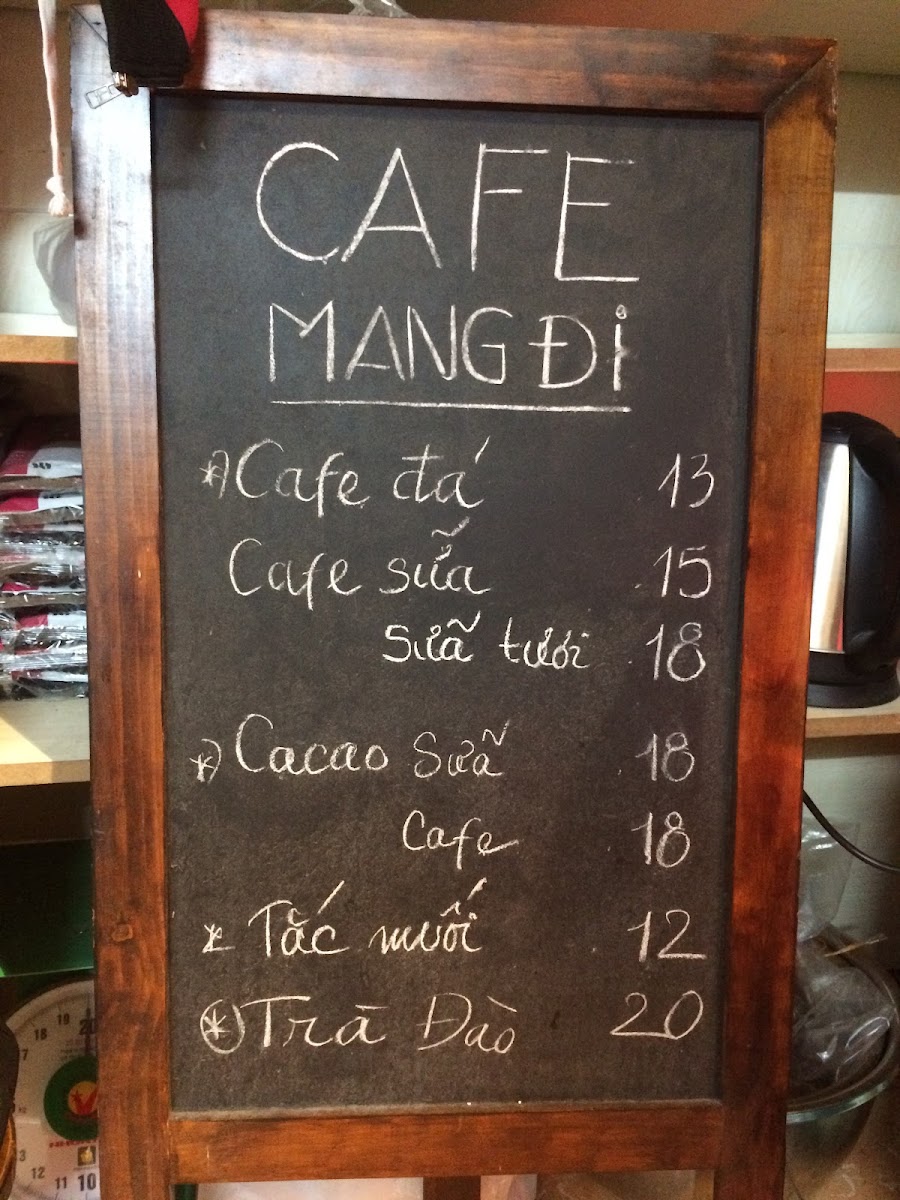 CAFE
MANG ĐI
*) Cafe đá 13
Cafe sữa 15
sữa tươi 18
*) Cacao sữa 18
Cafe 18
* Tắc muối 12
* Trà Đào 20
17
18
19
20
13
12
11
10